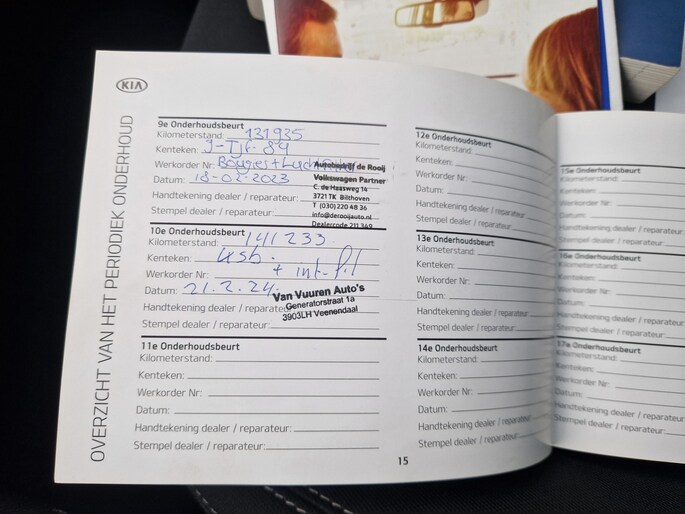 KIA
OVERZICHT VAN HET PERIODIEK ONDERHOUD
9e Onderhoudsbeurt
Kilometerstand: 131935
Kenteken:
Werkorder Nr: Bougies +
Datum: 18-02-2023
Handtekening dealer / reparateur:
Stempel dealer / reparateur:
Autobedrijf de Rooij
Volkswagen Partner
C. de Haasweg 14
3721 TK Bilthoven
T (030) 220 48 36
info@derooijauto.nl
Dealercode 211 349
10e Onderhoudsbeurt
Kilometerstand: 141 233
Kenteken:
Werkorder Nr: + int.
Datum: 21.2.24.
Handtekening dealer / reparateur
Stempel dealer / reparateur:
Van Vuuren Auto's
Generatorstraat 1a
3903LH Veenendaal
11e Onderhoudsbeurt
Kilometerstand:
Kenteken:
Werkorder Nr:
Datum:
Handtekening dealer / reparateur:
Stempel dealer / reparateur:
12e Onderhoudsbeurt
Kilometerstand:
Kenteken:
Werkorder Nr:
Datum:
Handtekening dealer / reparateur:
Stempel dealer / reparateur:
13e Onderhoudsbeurt
Kilometerstand:
Kenteken:
Werkorder Nr:
Datum:
Handtekening dealer / reparateur:
Stempel dealer / reparateur:
14e Onderhoudsbeurt
Kilometerstand:
Kenteken:
Werkorder Nr:
Datum:
Handtekening dealer / reparateur:
Stempel dealer / reparateur:
15
15e Onderhoudsbeurt
Kilometerstand:
Kenteken:
Werkorder Nr:
Datum:
Handtekening dealer / reparateur:
Stempel dealer / reparateur:
16e Onderhoudsbeurt
Kilometerstand:
Kenteken:
Werkorder Nr:
Datum:
Handtekening dealer / reparateur:
Stempel dealer / reparateur:
17e Onderhoudsbeurt
Kilometerstand:
Kenteken:
Werkorder Nr:
Datum:
Handtekening dealer / reparateur:
Stempel dealer / reparateur: